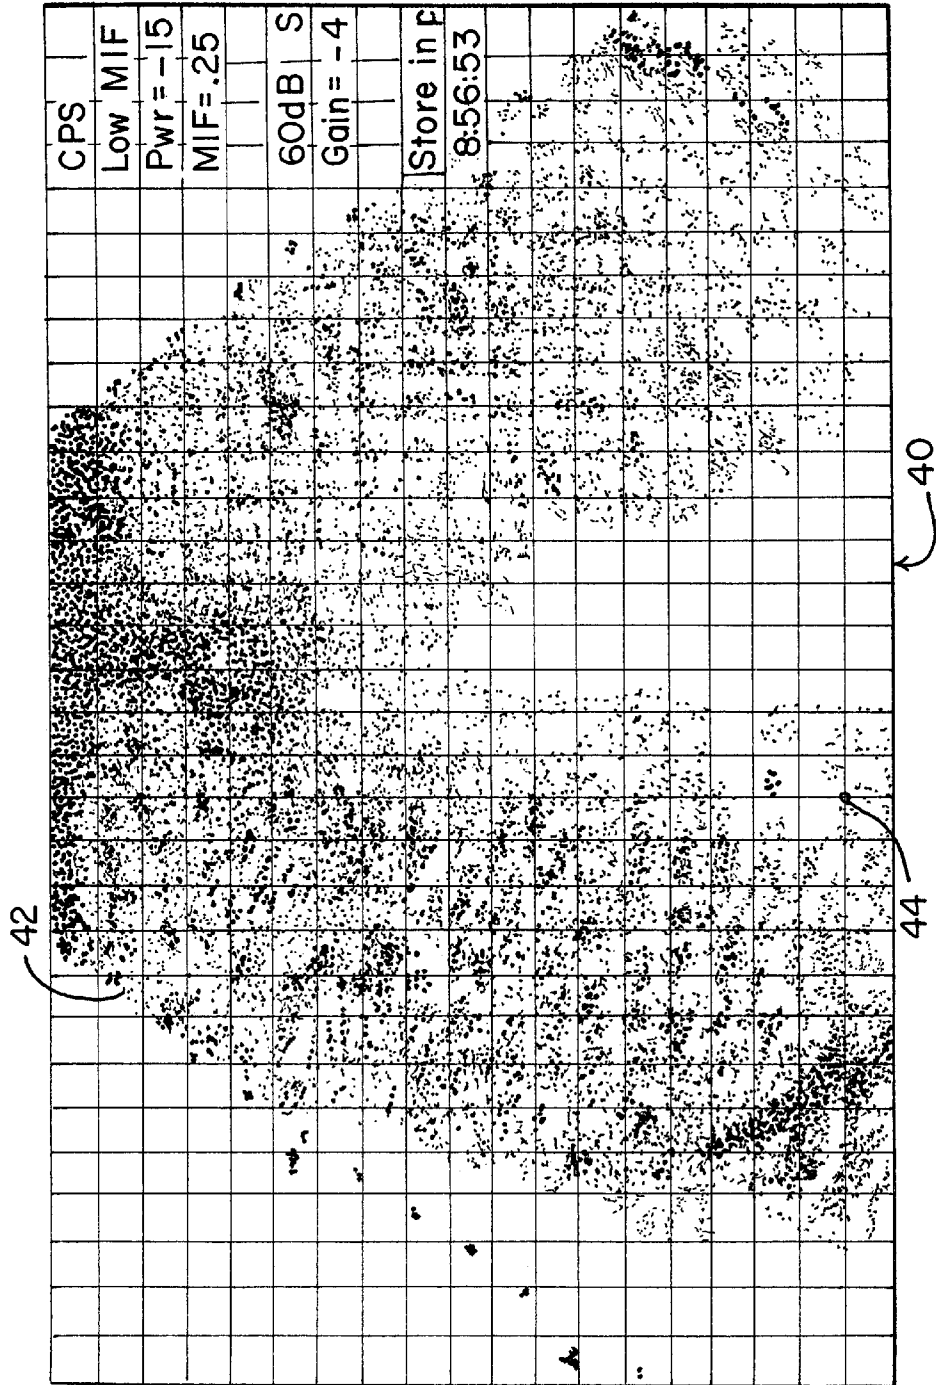 CPS
Low MIF
Pwr=-15
MIF=.25
60dB S
Gain= -4
Store in p
8:56:53
40
42
44